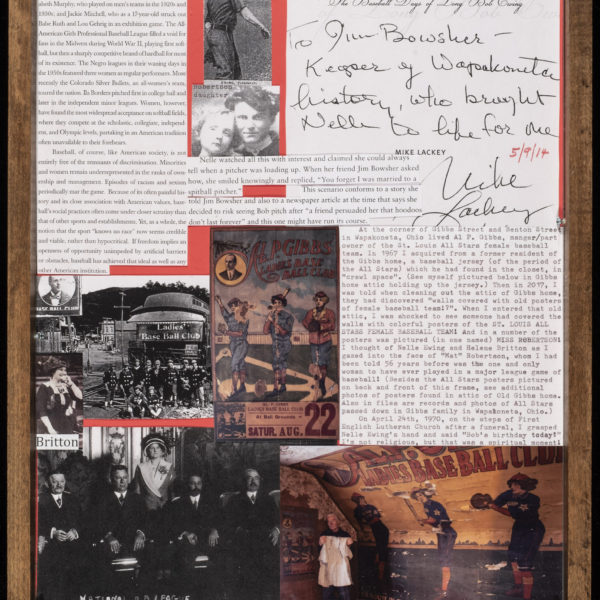 sbeth Murphy, who played on men's teams in the 1920s and
1930s; and Jackie Mitchell, who as a 17-year-old struck out
Babe Ruth and Lou Gehrig in an exhibition game. The All-
American Girls Professional Baseball League filled a void for
fans in the Midwest during World War II, playing first soft-
ball, but then a sharply competitive brand of hardball for most
of its existence. The Negro leagues in their waning days in
the 1950s featured three women as regular performers. Most
recently the Colorado Silver Bullets, an all-women's team,
toured the nation. Ila Borders pitched first in college ball and
later in the independent minor leagues. Women, however,
have found the most widespread acceptance on softball fields,
where they compete at the scholastic, collegiate, independ-
ent, and Olympic levels, partaking in an American tradition
often unavailable to their forebears.
Baseball, of course, like American society, is not
entirely free of the remnants of discrimination. Minorities
and women remain underrepresented in the ranks of own-
ership and management. Episodes of racism and sexism
periodically mar the game. Because of its often painful his-
tory and its close association with American values, base-
ball's social practices often come under closer scrutiny than
that of other sports and establishments. Yet, as a whole, the
notion that the sport "knows no race" now seems credible
and viable, rather than hypocritical. If freedom implies an
openness of opportunity unimpeded by artificial barriers
or obstacles, baseball has achieved that ideal as well as any
other American institution.
robertson
daughter
The Baseball Days of Long Bob Ewing
To Jim Bowsher -
Keeper of Wapakoneta
history, who brought
Nelle to life for me
MIKE LACKEY
5/9/14
Mike
Lackey
Nelle watched all this with interest and claimed she could always
tell when a pitcher was loading up. When her friend Jim Bowsher asked
how, she smiled knowingly and replied, "You forget I was married to a
spitball pitcher."
This scenario conforms to a story she
told Jim Bowsher and also to a newspaper article at the time that says she
decided to risk seeing Bob pitch after "a friend persuaded her that hoodoos
don't last forever" and this one might have run its course.
At the corner of Gibbs Street and Benton Street
in Wapakoneta, Ohio lived Al P. Gibbs, manger/part
owner of the St. Louis All Stars female baseball
team. In 1967 I acquired from a former resident of
the Gibbs home, a baseball jersey (of the period of
the All Stars) which he had found in the closet, in
"crawl space". (See myself pictured below in Gibbs
home attic holding up the jersey.) Then in 2017, I
was told when cleaning out the attic of Gibbs home,
they had discovered "walls covered with old posters
of female baseball team!?". When I entered that old
attic, I was shocked to see someone had covered the
walls with colorful posters of the ST. LOUIS ALL
STARS FEMALE BASEBALL TEAM! And in a number of the
posters was pictured (in one named) MISS ROBERTSON!
I thought of Nelle Ewing and Helene Britton as I
gazed into the face of "Mat" Robertson, whom I had
been told 56 years before was the one and only
woman to have ever played in a major league game of
baseball! (Besides the All Stars posters pictured
on back and front of this frame, see additional
photos of posters found in attic of Old Gibbs home.
Also in files are records and photos of All Stars
passed down in Gibbs family in Wapakoneta, Ohio.)
On April 24th, 1970, on the steps of First
English Lutheran Church after a funeral, I grasped
Nelle Ewing's hand and said "Bob's birthday today!"
I'm not religious, but that was a spiritual moment
AL. P. GIBBS
LADIES BASE BALL CLUB
AL. P. GIBBS
LADIES BASE BALL CLUB
At Ball Grounds
SATUR. AUG. 22
BASE BALL CLUB
Ladies'
Base Ball Club
Britton
NATIONAL LEAGUE
LADIES BASE BALL CLUB